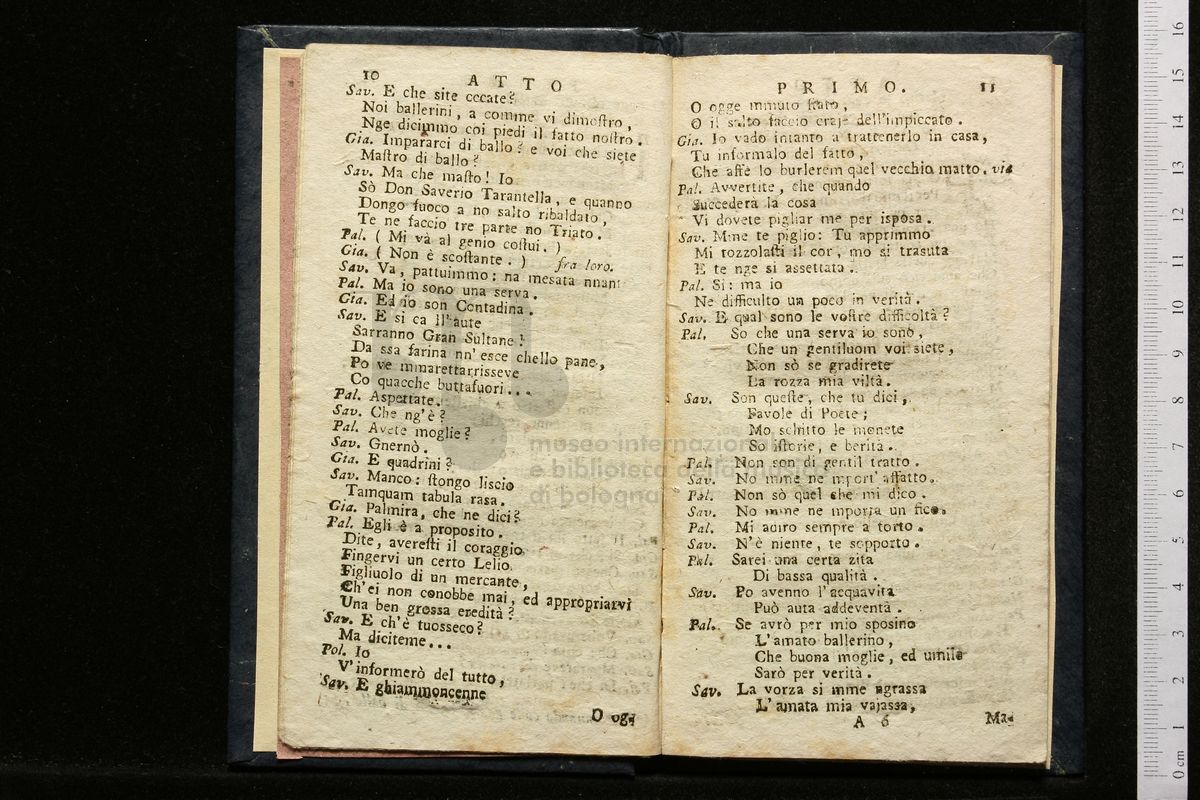 10 ATTO
Sav. E che site cecate?
Noi ballerini, a comme vi dimoſtro,
Nge dicimmo coi piedi il fatto noſtro.
Gia. Impararci di ballo? e voi che siete
Maſtro di ballo?
Sav. Ma che maſto! Io
Sò Don Saverio Tarantella, e quanno
Dongo fuoco a no salto ribaldato,
Te ne faccio tre parte no Triato.
Pal. ( Mi và al genio coſtui. )
Gia. ( Non è scoſtante. ) fra loro.
Sav. Va, pattuimmo: na mesata nnant
Pal. Ma io sono una serva.
Gia. Ed io son Contadina.
Sav. E si ca ll'aute
Sarranno Gran Sultane!
Da ssa farina nn' esce chello pane,
Po ve mmarettarrisseve
Co quacche buttafuori...
Pal. Aspettate.
Sav. Che ng'è?
Pal. Avete moglie?
Sav. Gnernò.
Gia. E quadrini?
Sav. Manco: ſtongo liscio
Tamquam tabula rasa.
Gia. Palmira, che ne dici?
Pal. Egli è a proposito.
Dite,ávereſti il coraggio
Fingervi un certo Lelio
Figliuolo di un mercante,
Ch'ei non conobbe mai, ed appropriarvi
Una ben grossa eredità?
Sav. E ch'è tuosseco?
Ma diciteme...
Pol. Io
V'informerò del tutto,
Sav. E ghiammoncenne
O ogg
PRIMO. 11
O ogge mmuto ſtato,
O il salto faccio craje dell'impiccato.
Gia. Io vado intanto a trattenerlo in casa,
Tu informalo del fatto,
Che affe lo burlerem quel vecchio matto. via
Pal. Avvertite, che quando
Succederà la cosa
Vi dovete pigliar me per isposa.
Sav. Mme te piglio: Tu apprimmo
Mi rozzolaſti il cor, mo si trasuta
E te nge si assettata.
Pal. Si: ma io
Ne difficulto un poco in verità.
Sav. E qual sono le voſtre difficoltà?
Pal. So che una serva io sono,
Che un gentiluom voi siete,
Non sò se gradirete
La rozza mia viltà.
Sav. Son queſte, che tu dici,
Favole di Poete;
Mo schitto le monete
So iſtorie, e berità.
Pal. Non son di gentil tratto.
Sav. No mme ne mport' affatto.
Pal. Non sò quel che mi dico.
Sav. No mme ne mporta un fico.
Pal. Mi adiro sempre a torto.
Sav. N'è niente, te sopporto.
Pal. Sarei una certa zita
Di bassa qualità.
Sav. Po avenno l'acquavita
Può auta addeventà.
Pal. Se avrò per mio sposino
L'amato ballerino,
Che buona moglie, ed umile
Sarò per verità.
Sav. La vorza si mme ngrassa
L'amata mia vajassa,
A 6 Ma
museo internazionale
e biblioteca della musica
di bologna